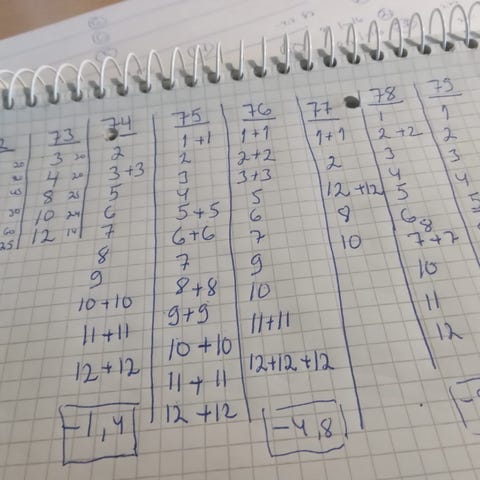 73
3 20
4 20
8 25
10 24
12
74
2
3+3
5
6
7
8
9
10+10
11+11
12+12
-1,4
75
1+1
2
3
4
5+5
6+6
7
8+8
9+9
10+10
11+11
12+12
76
1+1
2+2
3+3
5
6
7
9
10
11+11
12+12+12
-4,8
77
1+1
2
12+12
8
10
78
1
2+2
3
4
5
6
8
7+7
10
11
12
79
1
2
3
4
5